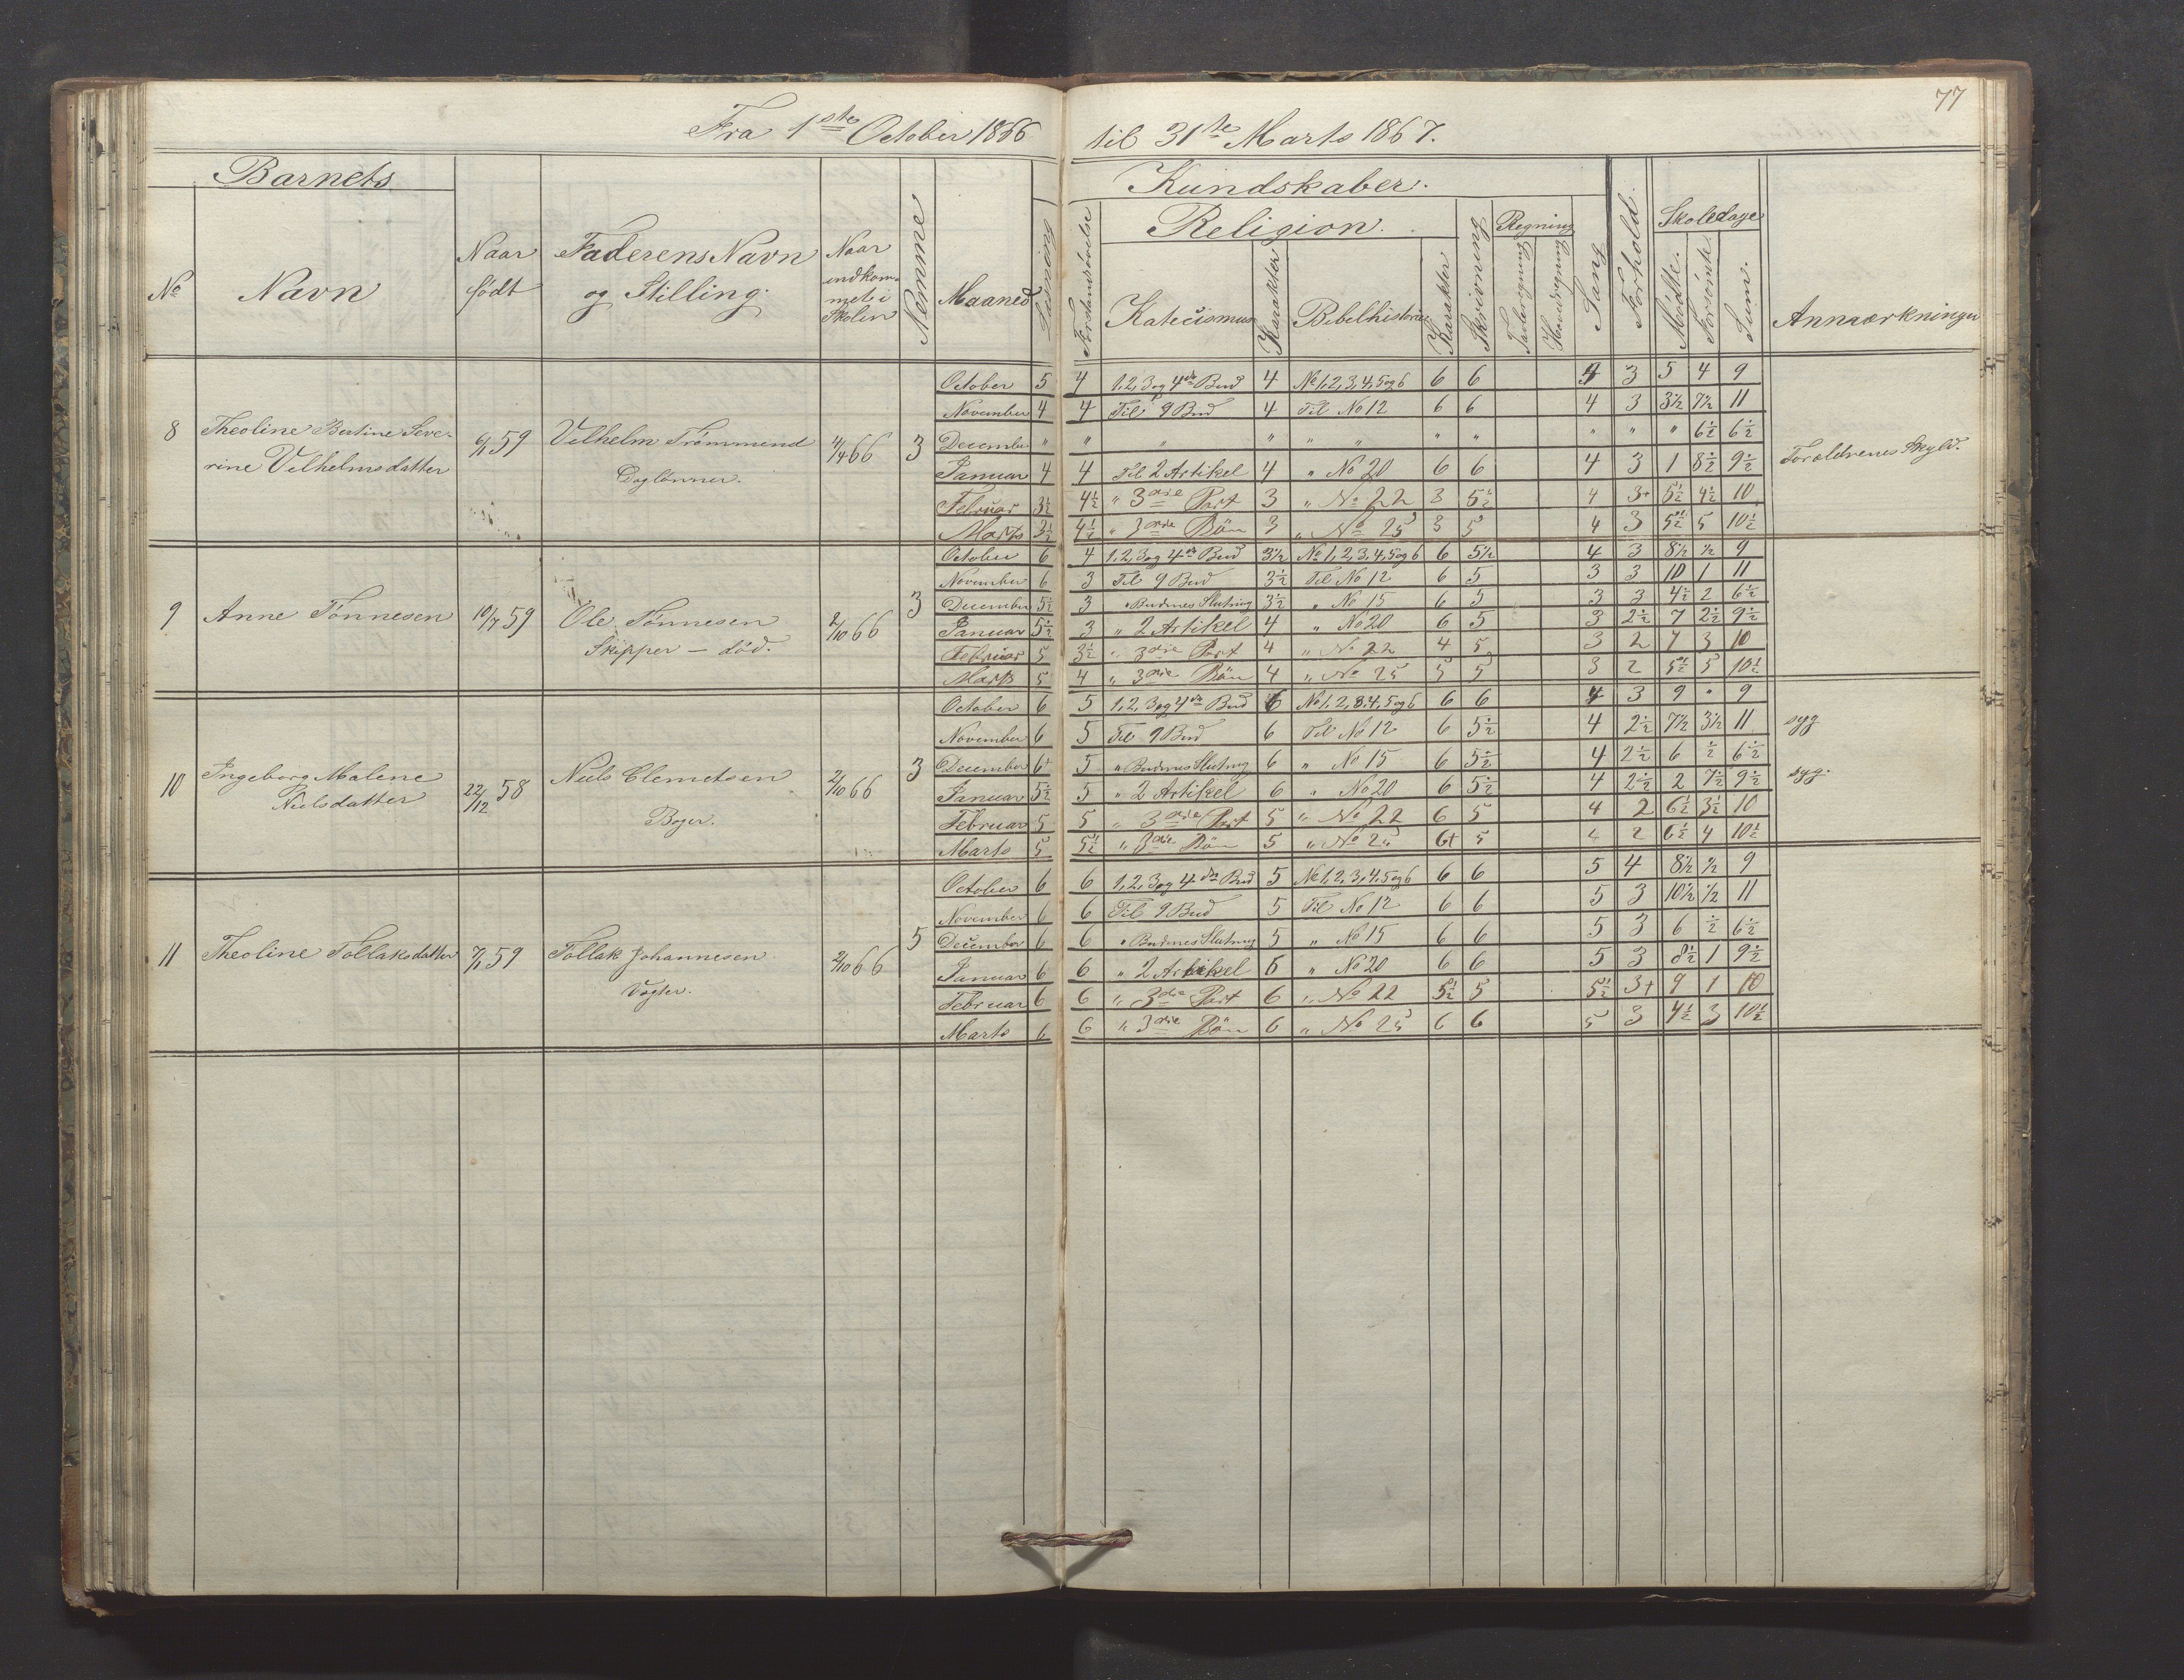 77
Fra 1ste October 1866 til 31te Marts 1867.
Barnets
Kundskaber.
Religion.
Regning
Skoledage
No
Navn
Naar født
Faderens Navn og Stilling
Naar indkommet i Skolen
Nemme
Maaned
Læsning
Forstandsøvelse
Katecismus
Karakter
Bibelhistorie
Karakter
Skrivning
Tavleregning
Hovedregning
Sang
Forhold
Mødte.
Forsømte.
Sum.
Anmærkninger
8 Theoline Bertine Severine Vilhelmsdatter 6/1 59 Vilhelm Trommend Daglønner. 4/4 66 3
October 5 4 1,2,3 og 4de Bud 4 No 1,2,3,4,5 og 6 6 6 4 3 5 4 9
November 4 4 Til 9 Bud 4 Til No 12 6 6 4 3 3½ 7½ 11
December " " " " " " " " " " " 6½ 6½
Januar 4 4 Til 2 Artikel 4 " No 20 6 6 4 3 1 8½ 9½ Forældrenes Skyld.
Februar 3½ 4½ " 3die Part 3 " No 22 3 5½ 4 3+ 5½ 4½ 10
Marts 3½ 4½ " 3die Bön 3 " No 25 3 5 4 3 5½ 5 10½
9 Anne Tönnesen 10/7 59 Ole Tönnesen Skipper — död. 2/10 66 3
October 6 4 1,2,3 og 4de Bud 3½ No 1,2,3,4,5 og 6 6 5½ 4 3 8½ ½ 9
November 6 3 Til 9 Bud 3½ Til No 12 6 5 3 3 10 1 11
December 5½ 3 " Budenes Slutning 3½ " No 15 6 5 3 3 4½ 2 6½
Januar 5½ 3 " 2 Artikel 4 " No 20 6 5 3 2½ 7 2½ 9½
Februar 5 3½ " 3die Part 4 " No 22 4 5 3 2 7 3 10
Marts 5 4 " 3die Bön 4 " No 25 5 5 3 2 5½ 5 10½
10 Ingeborg Malene Nielsdatter 22/12 58 Niels Clemetsen Bøger. 2/10 66 3
October 6 5 1,2,3 og 4de Bud 6 No 1,2,3,4,5 og 6 6 6 4 3 9 " 9
November 6 5 Til 9 Bud 6 Til No 12 6 5½ 4 2½ 7½ 3½ 11 syg
December 6+ 5 " Budenes Slutning 6 " No 15 6 5½ 4 2½ 6 ½ 6½
Januar 5½ 5 " 2 Artikel 6 " No 20 6 5½ 4 2½ 2 7½ 9½ syg.
Februar 5 5 " 3die Part 5 " No 22 6 5 4 2 6½ 3½ 10
Marts 5 5½ " 3die Bön 5 " No 25 6+ 5 4 2 6½ 4 10½
11 Theoline Tollaksdatter 7/1 59 Tollak Johannesen Vægter. 2/10 66 5
October 6 6 1,2,3 og 4de Bud 5 No 1,2,3,4,5 og 6 6 6 5 4 8½ ½ 9
November 6 6 Til 9 Bud 5 Til No 12 6 6 5 3 10½ ½ 11
December 6 6 " Budenes Slutning 5 " No 15 6 6 5 3 6 ½ 6½
Januar 6 6 " 2 Artikel 6 " No 20 6 6 5 3 8½ 1 9½
Februar 6 6 " 3die Part 6 " No 22 5½ 5 5½ 3+ 9 1 10
Marts 6 6 " 3die Bön 6 " No 25 6 6 5 3 4½ 3 10½